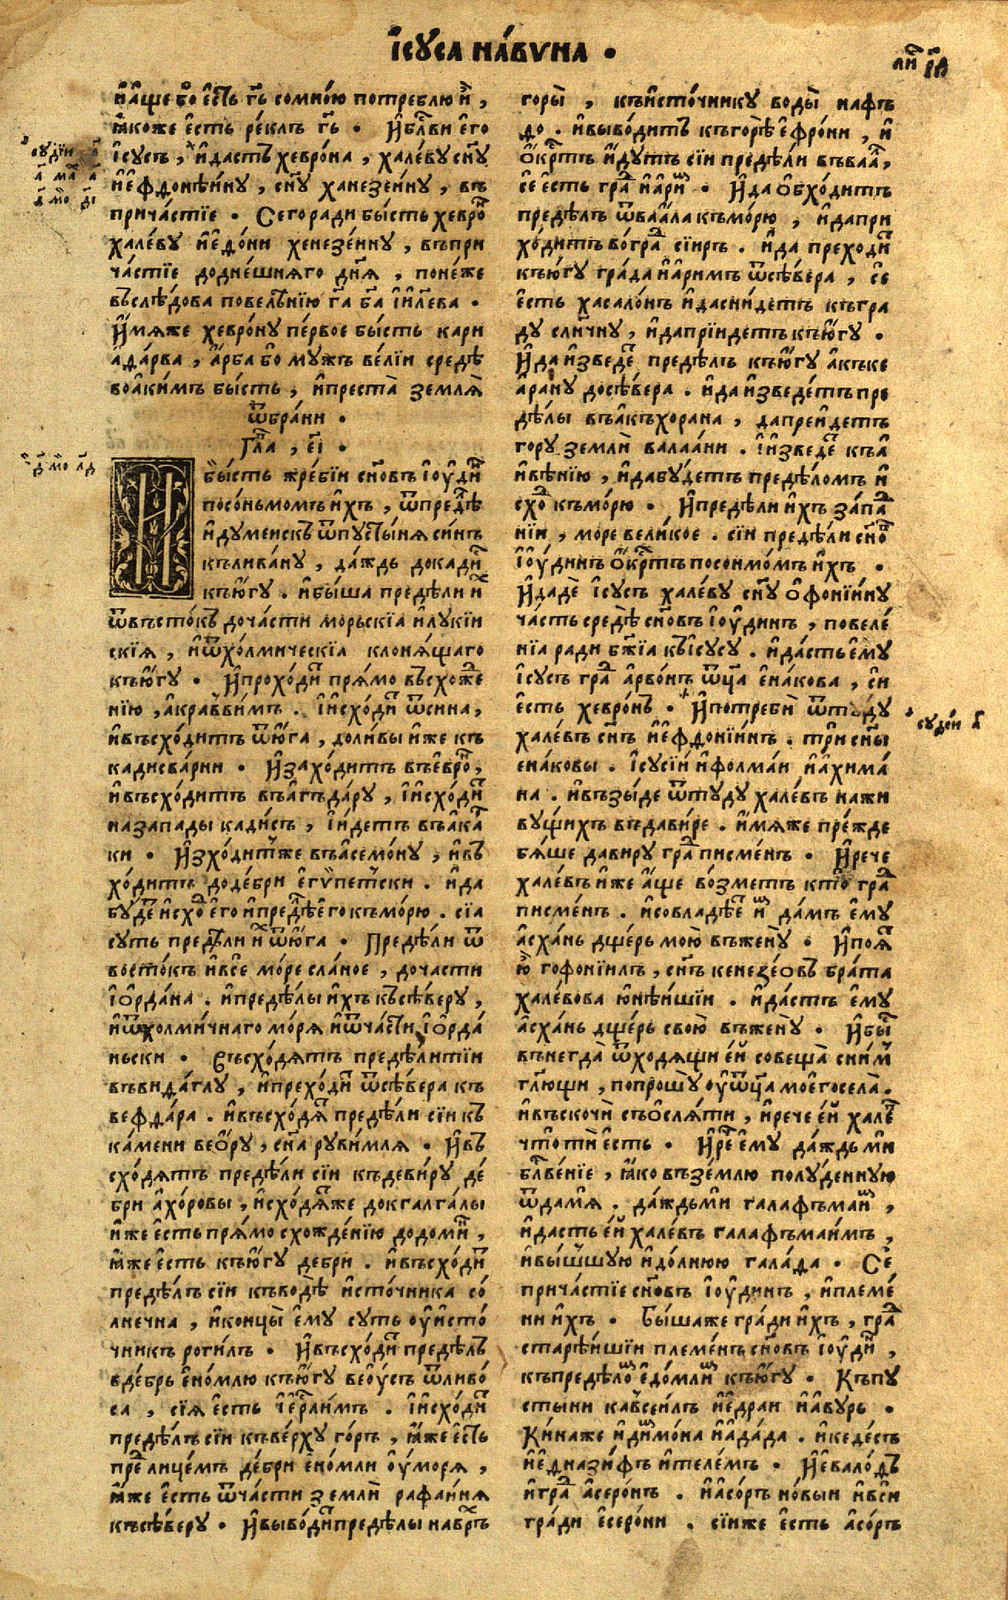 І҆сꙋ́са наѵи́на •
и҆а҆́ще бо є҆́сть гь҃ сомно́ю потреблю̀ и҆̀ ,
ꙗ҆́коже є҆́сть ре́клъ гь҃ • И҆блг҃ви є҆го̀
і҆сꙋ́съ , и҆да́стъ хевро́на , хале́вꙋ сн҃ꙋ
и҆є҆фдони́инꙋ , сн҃ꙋ ханезе́инꙋ , въ
прича́стїе • Сегора́ди бы́сть хевро́
хале́вꙋ и҆є҆до́ни хенезе́инꙋ , въпри
ча́стїе додне́шнѧго дн҃ѧ , поне́же
въслѣ́дова повелѣ́нїю га҃ ба҃ і҆и҃лева •
И҆́мѧже хевро́нꙋ пе́рвое бы́сть кари
а҆да́рва , а҆́рба бо мꙋ́жъ ве́лїи средѣ̀
воа҆ки́мъ бы́сть , и҆преста̀ землѧ̀
ѿбра́ни •
Гла҃ , є҃і •
И҆бы́сть жре́бїи сн҃овъ і҆ꙋ́ди
посо́ньмомъ и҆́хъ , ѿпредѣ́
и҆дꙋме́искъ ѿпꙋсты́нѧ си́нъ
кълива́нꙋ , да́ждь докади
къю҆́гꙋ . и҆бы́ша предѣ́ли и҆
ѿвъсто́къ доча́сти мо́рьскїа и҆лꙋкїи
скїѧ , и҆ѿхо́лмическїа клонѧ́щаго
къю҆́гꙋ • И҆прохо́ди прѧ́мо въсхоже
нїю , а҆кравви́мъ . і҆и҆схо́ди ѿси́на ,
и҆въсхо́дитъ ѿю҆́га , доли́вы и҆́же къ
кадисва́рни • И҆захо́дитъ въє҆вро́ ,
и҆въсхо́дитъ въа҆гъда́рꙋ , і҆и҆схо́ди
наза́пады кади́съ , і҆и҆́детъ въа҆ка
ки • И҆зхо́дитже въа҆семо́нꙋ , и҆въ
хо́дитъ доде́бри є҆гѵ́петски . и҆да
бꙋ́де и҆схо є҆го̀ и҆предѣ́ є҆го̀ къмо́рю . сїа̀
сꙋ́ть предѣ́ли и҆ ѿю҆́га • Предѣ́ли ѿ
восто́къ и҆всѐ мо́ре сла́ное , доча́сти
і҆ѻ҆рда́на . и҆предѣ́лы и҆́хъ късѣ́верꙋ ,
и҆ѿхолми́чнаго мо́рѧ и҆ѿча́сти і҆ѻ҆рда́
ньски • Въсхо́дѧтъ предѣ́литїи
въвида́глꙋ , и҆прехо́ди ѿсѣ́вера къ
вефда́ра . и҆въсхо́дѧ предѣ́ли сїи къ
ка́мени веѻ҆́рꙋ , сн҃а рꙋви́млѧ • И҆въ
схо́дѧтъ предѣ́ли сїи къдеви́рꙋ де́
бри а҆хо́ровы , и҆схо́дѧже докгалга́лы
и҆́же є҆́сть прѧ́мо схожде́нїю додоми́ ,
ꙗ҆́же є҆́сть къю҆́гꙋ дебри . и҆въсхо́ди
предѣ́лъ сїи къводѣ̀ и҆сто́чника со́
лнечна , и҆концы̀ є҆мꙋ̀ сꙋ́ть оу҆и҆сто́
чникъ роги́лъ • И҆въсхо́ди предѣ́лъ
вде́брь є҆но́млю къю҆́гꙋ веѻ҆́ꙋсъ ѿливо́
са , сїѧ̀ є҆́сть і҆є҆р҃ли́мъ . і҆и҆схо́ди
предѣ́лъ сїи къве́рхꙋ го́ръ , ꙗ҆́же є҆́сть
пре лице́мъ де́бри є҆но́мли оу҆мо́рѧ ,
ꙗ҆́же є҆́сть ѿча́сти землѝ рафаи́нѧ
късѣ́верꙋ • И҆выво́дипредѣ́лы наврхъ
горы̀ , къи҆сто́чникꙋ воды̀ нафъ
до . и҆выво́дитъ къгорѣ̀ є҆фро́ни , и҆
ѻ҆́кртъ и҆́дꙋтъ сїи предѣ́ли въваа ,
се є҆́сть гра и҆а҆ри • И҆да ѻ҆бхо́дитъ
предѣ́лъ ѿваа́ла къмо́рю , и҆дапри
хо́дитъ во́гра сїиръ . и҆да прехо́ди
къю҆́гꙋ гра́да и҆а҆ри́мъ ѿсѣ́вера , се
є҆́сть хасало́нъ и҆дасни́детъ къгра
дꙋ сли́чнꙋ , и҆дапрїи́детъ къю҆́гꙋ •
И҆да и҆зведе предѣ́лъ къю҆́гꙋ а҆къке
а҆ра́нꙋ досѣ́вера . и҆да и҆зведе́тъ пре
дѣ́лы въа҆къхора́на , дапреи́детъ
горꙋ̀ землѝ валаа́ни . і҆и҆зведе къа
и҆вѣ́нїю , и҆дабꙋ́детъ предѣ́ломъ и҆
схо къмо́рю • И҆предѣ́ли и҆́хъ за́па
нїи , мо́ре вели́кое . сїи предѣ́ли сн҃о
і҆ꙋ́динъ ѻ҆́кртъ посоимо́мъ и҆́хъ •
И҆дадѐ і҆сꙋ́съ хале́вꙋ сн҃ꙋ ѻ҆фонїи́нꙋ
ча́сть средѣ̀ сн҃овъ і҆ꙋ́динъ , повеле́
нїа ради бж҃їа къі҆сꙋ́сꙋ . и҆да́сть є҆мꙋ̀
і҆сꙋ́съ гра а҆рво́нъ ѿц҃а є҆на́кова , си
є҆́сть хевро́нъ • И҆потребѝ ѿтꙋ́дꙋ
хале́въ сн҃ъ и҆є҆фдонїи́нъ . три сн҃ы
є҆на́ковы . і҆сꙋсїи́ и҆фолма́и и҆а҆хима́
на . и҆възы́де ѿтꙋ́дꙋ хале́въ нажи
вꙋ́щихъ въдави́ре . и҆́мѧже пре́жде
бѧ́ше давирꙋ гра писме́нъ • И҆рече
хале́въ и҆́же а҆́ще во́зметъ кто̀ гра
писме́нъ . и҆совладѣ́е и҆ да́мъ є҆мꙋ̀
а҆сха́нь дще́рь мою̀ въженꙋ̀ • И҆поѧ
ю҆̀ гофонїи́лъ , сн҃ъ кенезе́овъ бра́та
хале́вова ю҆нѣ́ишїи . и҆да́стъ є҆мꙋ̀
а҆сха́нь дще́рь свою̀ въженꙋ̀ • И҆бы
вънегда̀ ѿходѧ́щи є҆́й совеща̀ сним
гл҃ющи , попрошꙋ̀ оу҆ѿц҃а моегосела̀ .
и҆въскочѝ съѻ҆слѧ́ти , и҆рече є҆́й хале
что́тѝ є҆́сть • И҆ре є҆мꙋ̀ да́ждь ми
блг҃ве́нїе , ꙗ҆́ко въземлю полꙋ́деннꙋю
ѿда́мѧ . да́ждьми галафъмаи ,
и҆да́сть є҆́й хале́въ галафъмаи́мъ ,
и҆вы́шшꙋю и҆до́лнюю гала́да • Се
прича́стїе сн҃овъ і҆ꙋ́динъ , и҆племе́
ни и҆́хъ • Бы́шаже гра́ди и҆́хъ , гра
старѣ́ишїи племе́нъ сн҃овъ і҆ꙋ́ди ,
къпредѣ́ло є҆до́мли къю҆́гꙋ • Къпꙋ
сты́ни кавсеи́лъ и҆є҆драи и҆а҆вꙋръ •
Ки́наже и҆димо́на и҆а҆да́да . и҆кеде́съ
и҆є҆дназі́фъ и҆теле́мъ • И҆евало́дъ
и҆гра а҆серо́нъ . и҆а҆со́ръ но́выи и҆вси
гра́ди є҆серо́ни . сїи́же є҆́сть а҆со́ръ